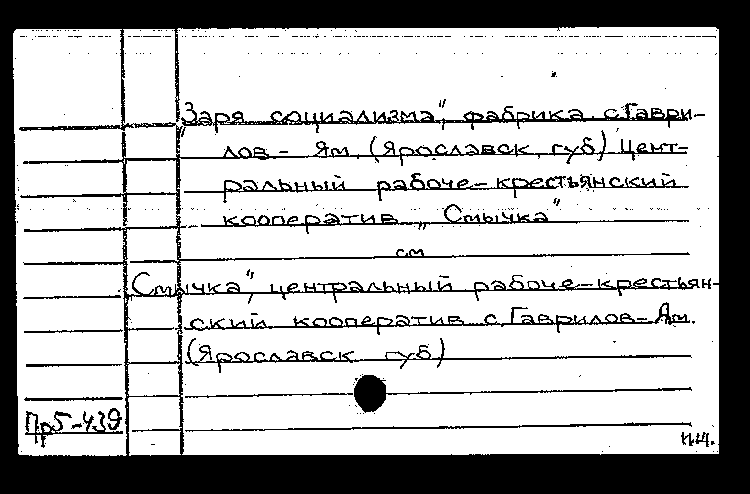 „Заря социализма", фабрика с. Гаври-
лов - Ям, (Ярославск. губ) Цент-
ральный рабоче-крестьянский
кооператив „Смычка"
см
„Смычка", центральный рабоче-крестьян-
ский кооператив с. Гаврилов-Ям.
(Ярославск губ)
Пр5-439